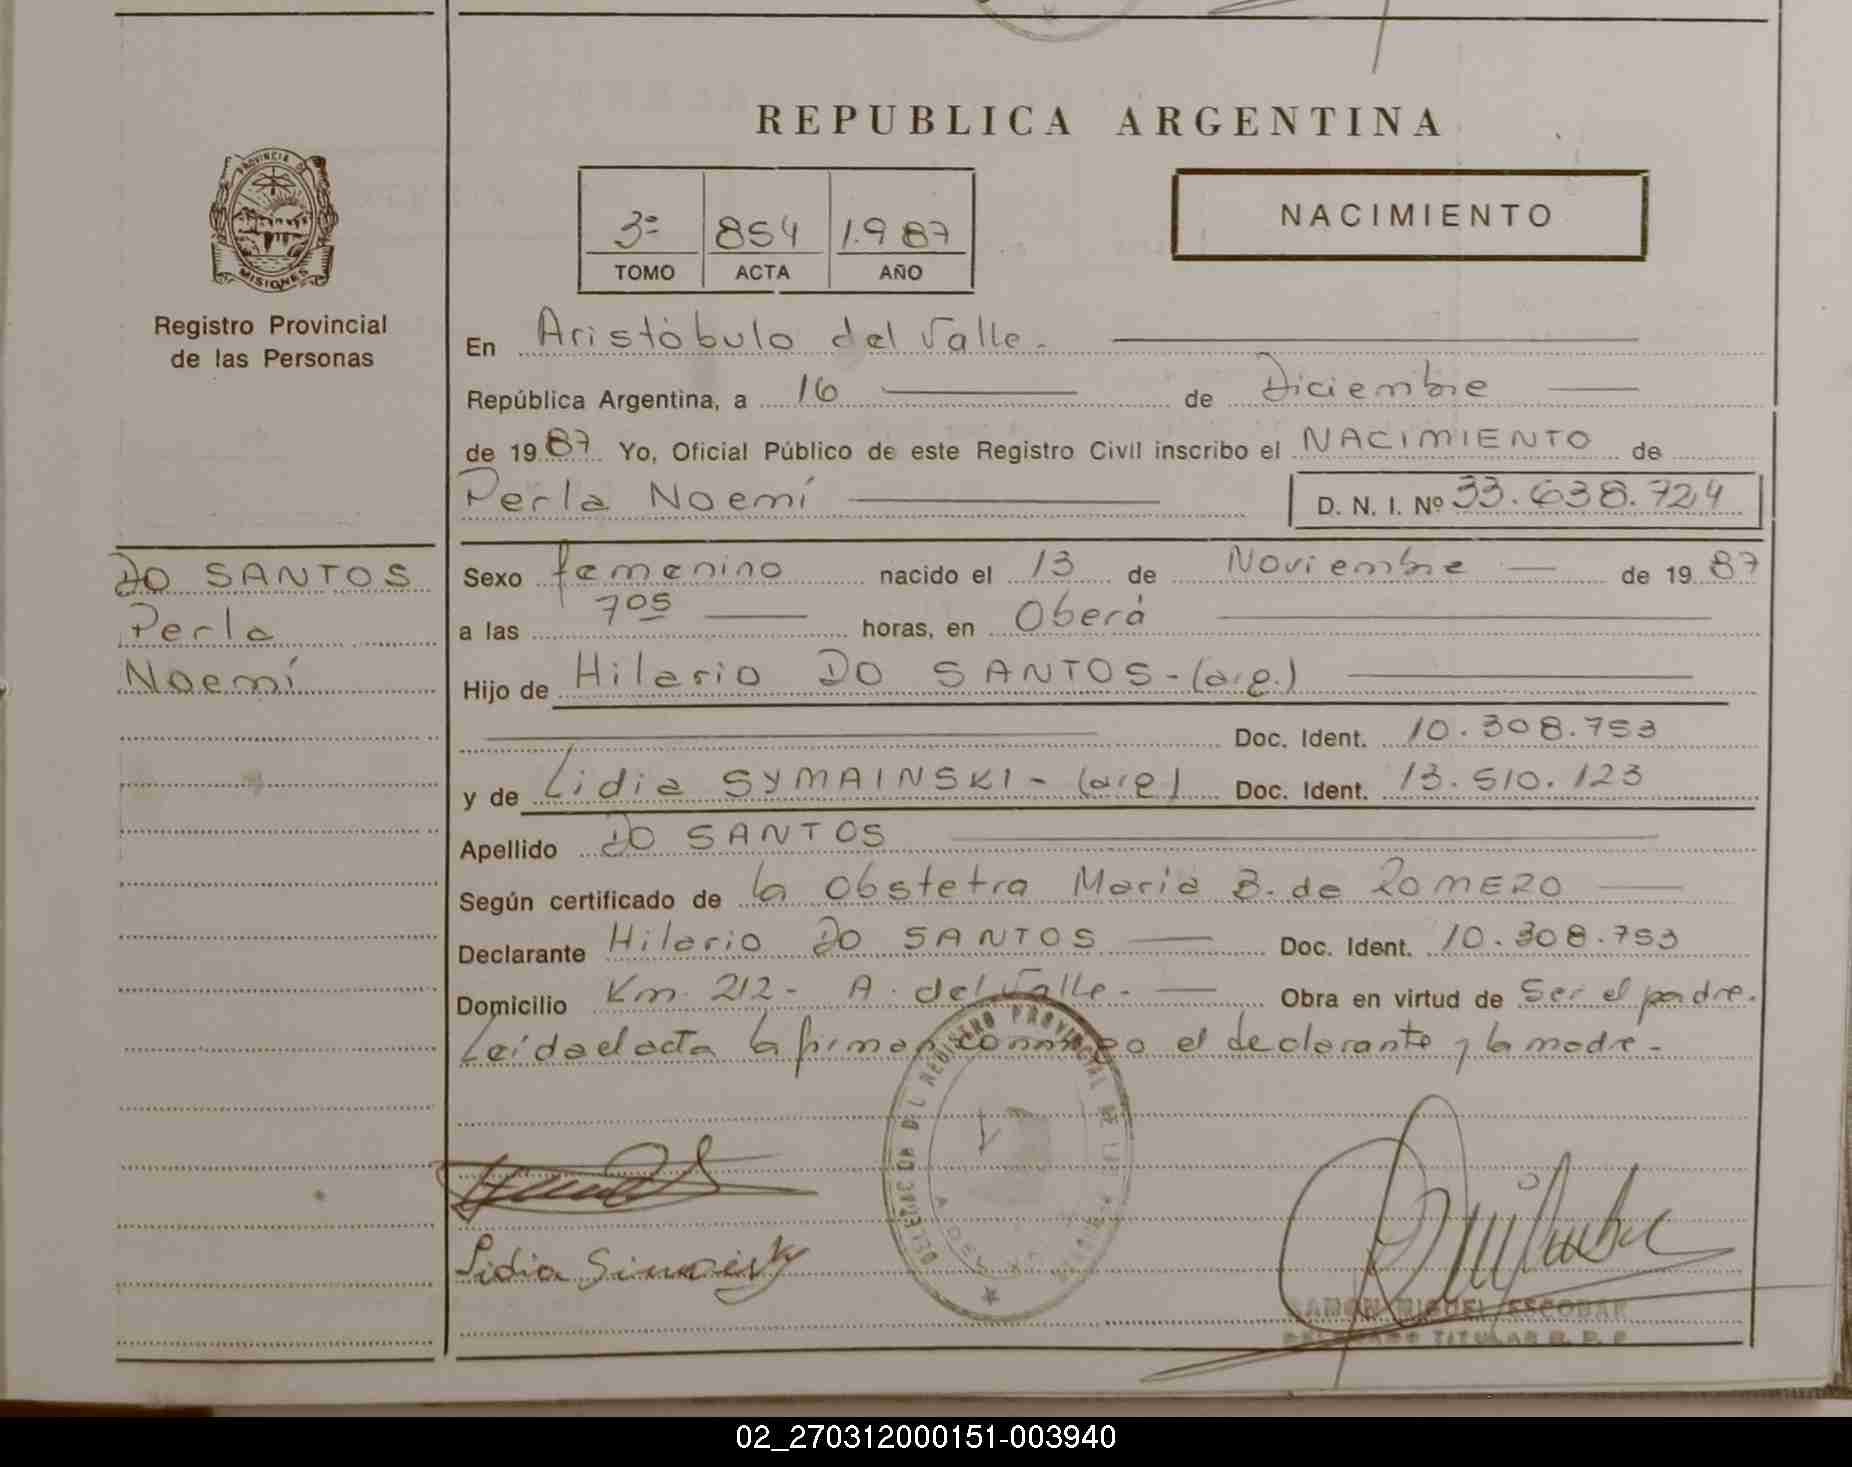 REPUBLICA ARGENTINA
PROVINCIA DE
MISIONES
Registro Provincial
de las Personas
3º 854 1.987
TOMO ACTA AÑO
NACIMIENTO
En Aristóbulo del Valle.
República Argentina, a 16 de Diciembre
de 1987 Yo, Oficial Público de este Registro Civil inscribo el NACIMIENTO de
Perla Noemí D. N. I. Nº 33.638.724
DO SANTOS
Perla
Noemí
Sexo femenino nacido el 13 de Noviembre de 1987
a las 7 05 horas, en Oberá
Hijo de Hilario DO SANTOS - (arg.)
Doc. Ident. 10.308.753
y de Lidia SYMAINSKI - (arg) Doc. Ident. 13.510.123
Apellido DO SANTOS
Según certificado de la Obstetra Maria B. de ROMERO
Declarante Hilario DO SANTOS Doc. Ident. 10.308.753
Domicilio Km 212 - A. del Valle. Obra en virtud de Ser el padre.
Leida el acta la firman conmigo el declarante y la madre -
DELEGACION DEL REGISTRO PROVINCIAL DE LAS
Lidia
RAMON MIGUEL ESCOBAR
DELEGADO TITULAR R. P. P
02_270312000151-003940